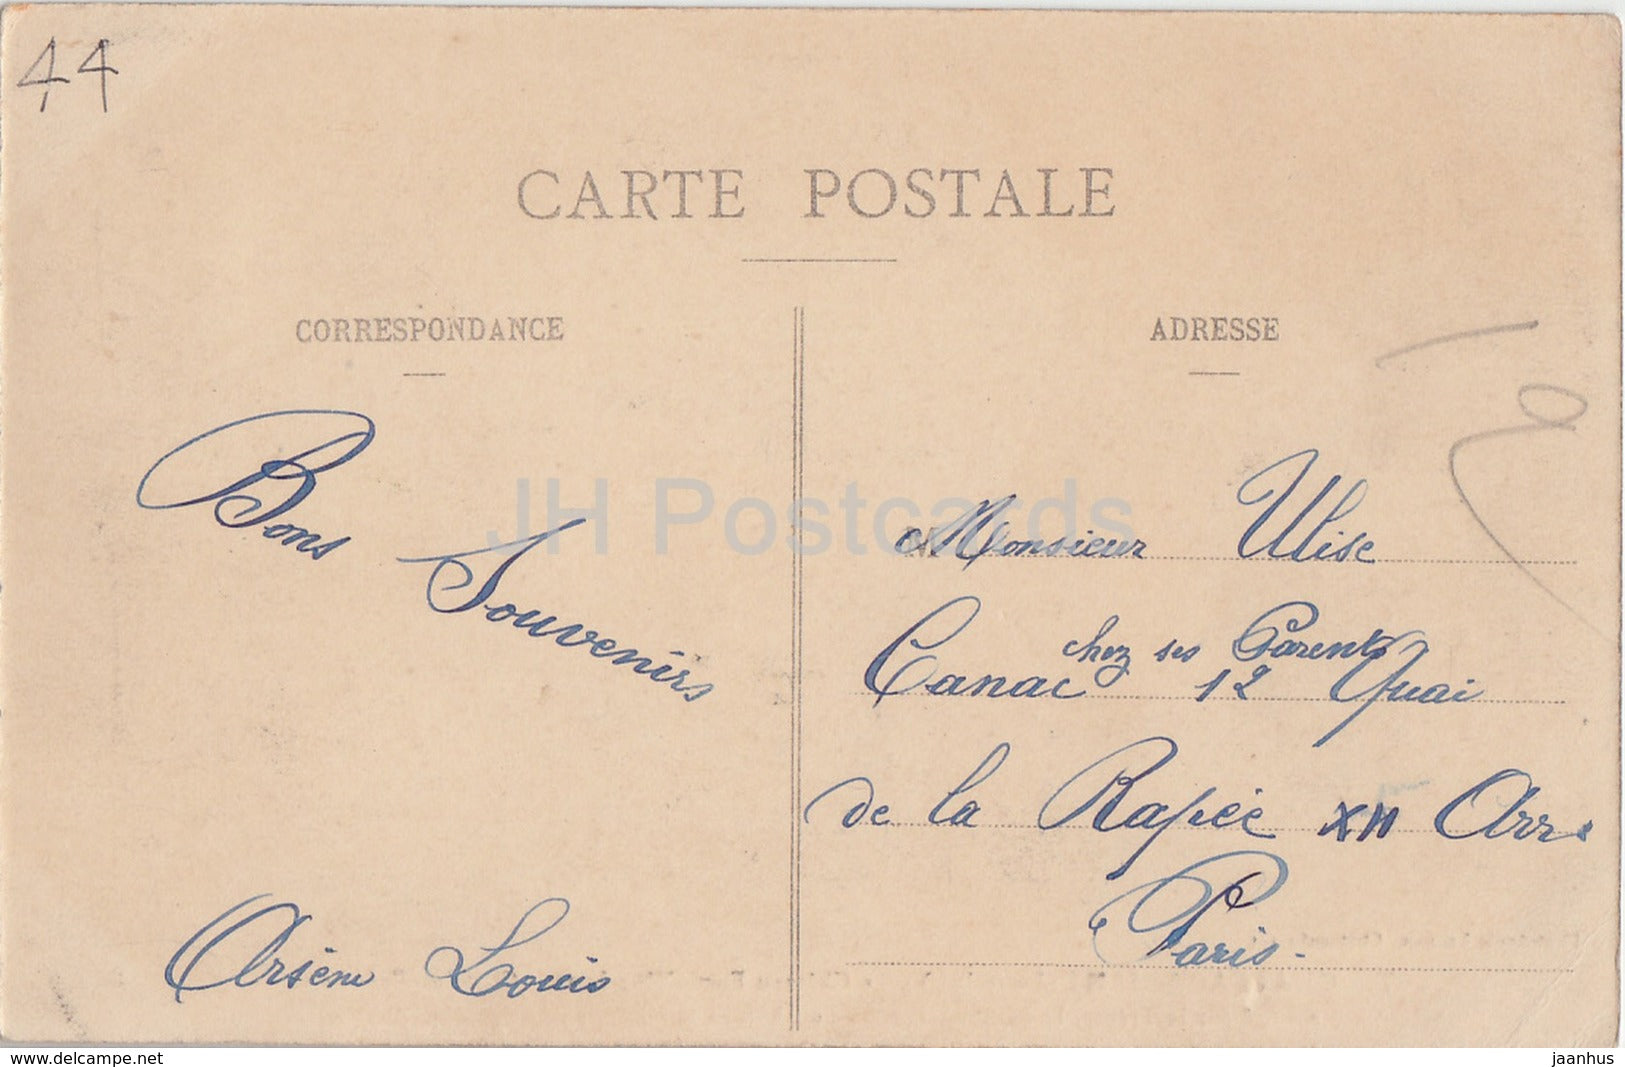 44
CARTE POSTALE
CORRESPONDANCE
ADRESSE
Bons Souvenirs
Arsène Louis
Monsieur Ulise
chez ses Parents
Canac 12 Quai
de la Rapée XII Arr.
Paris.
JH Postcards
www.delcampe.net
jaanhus